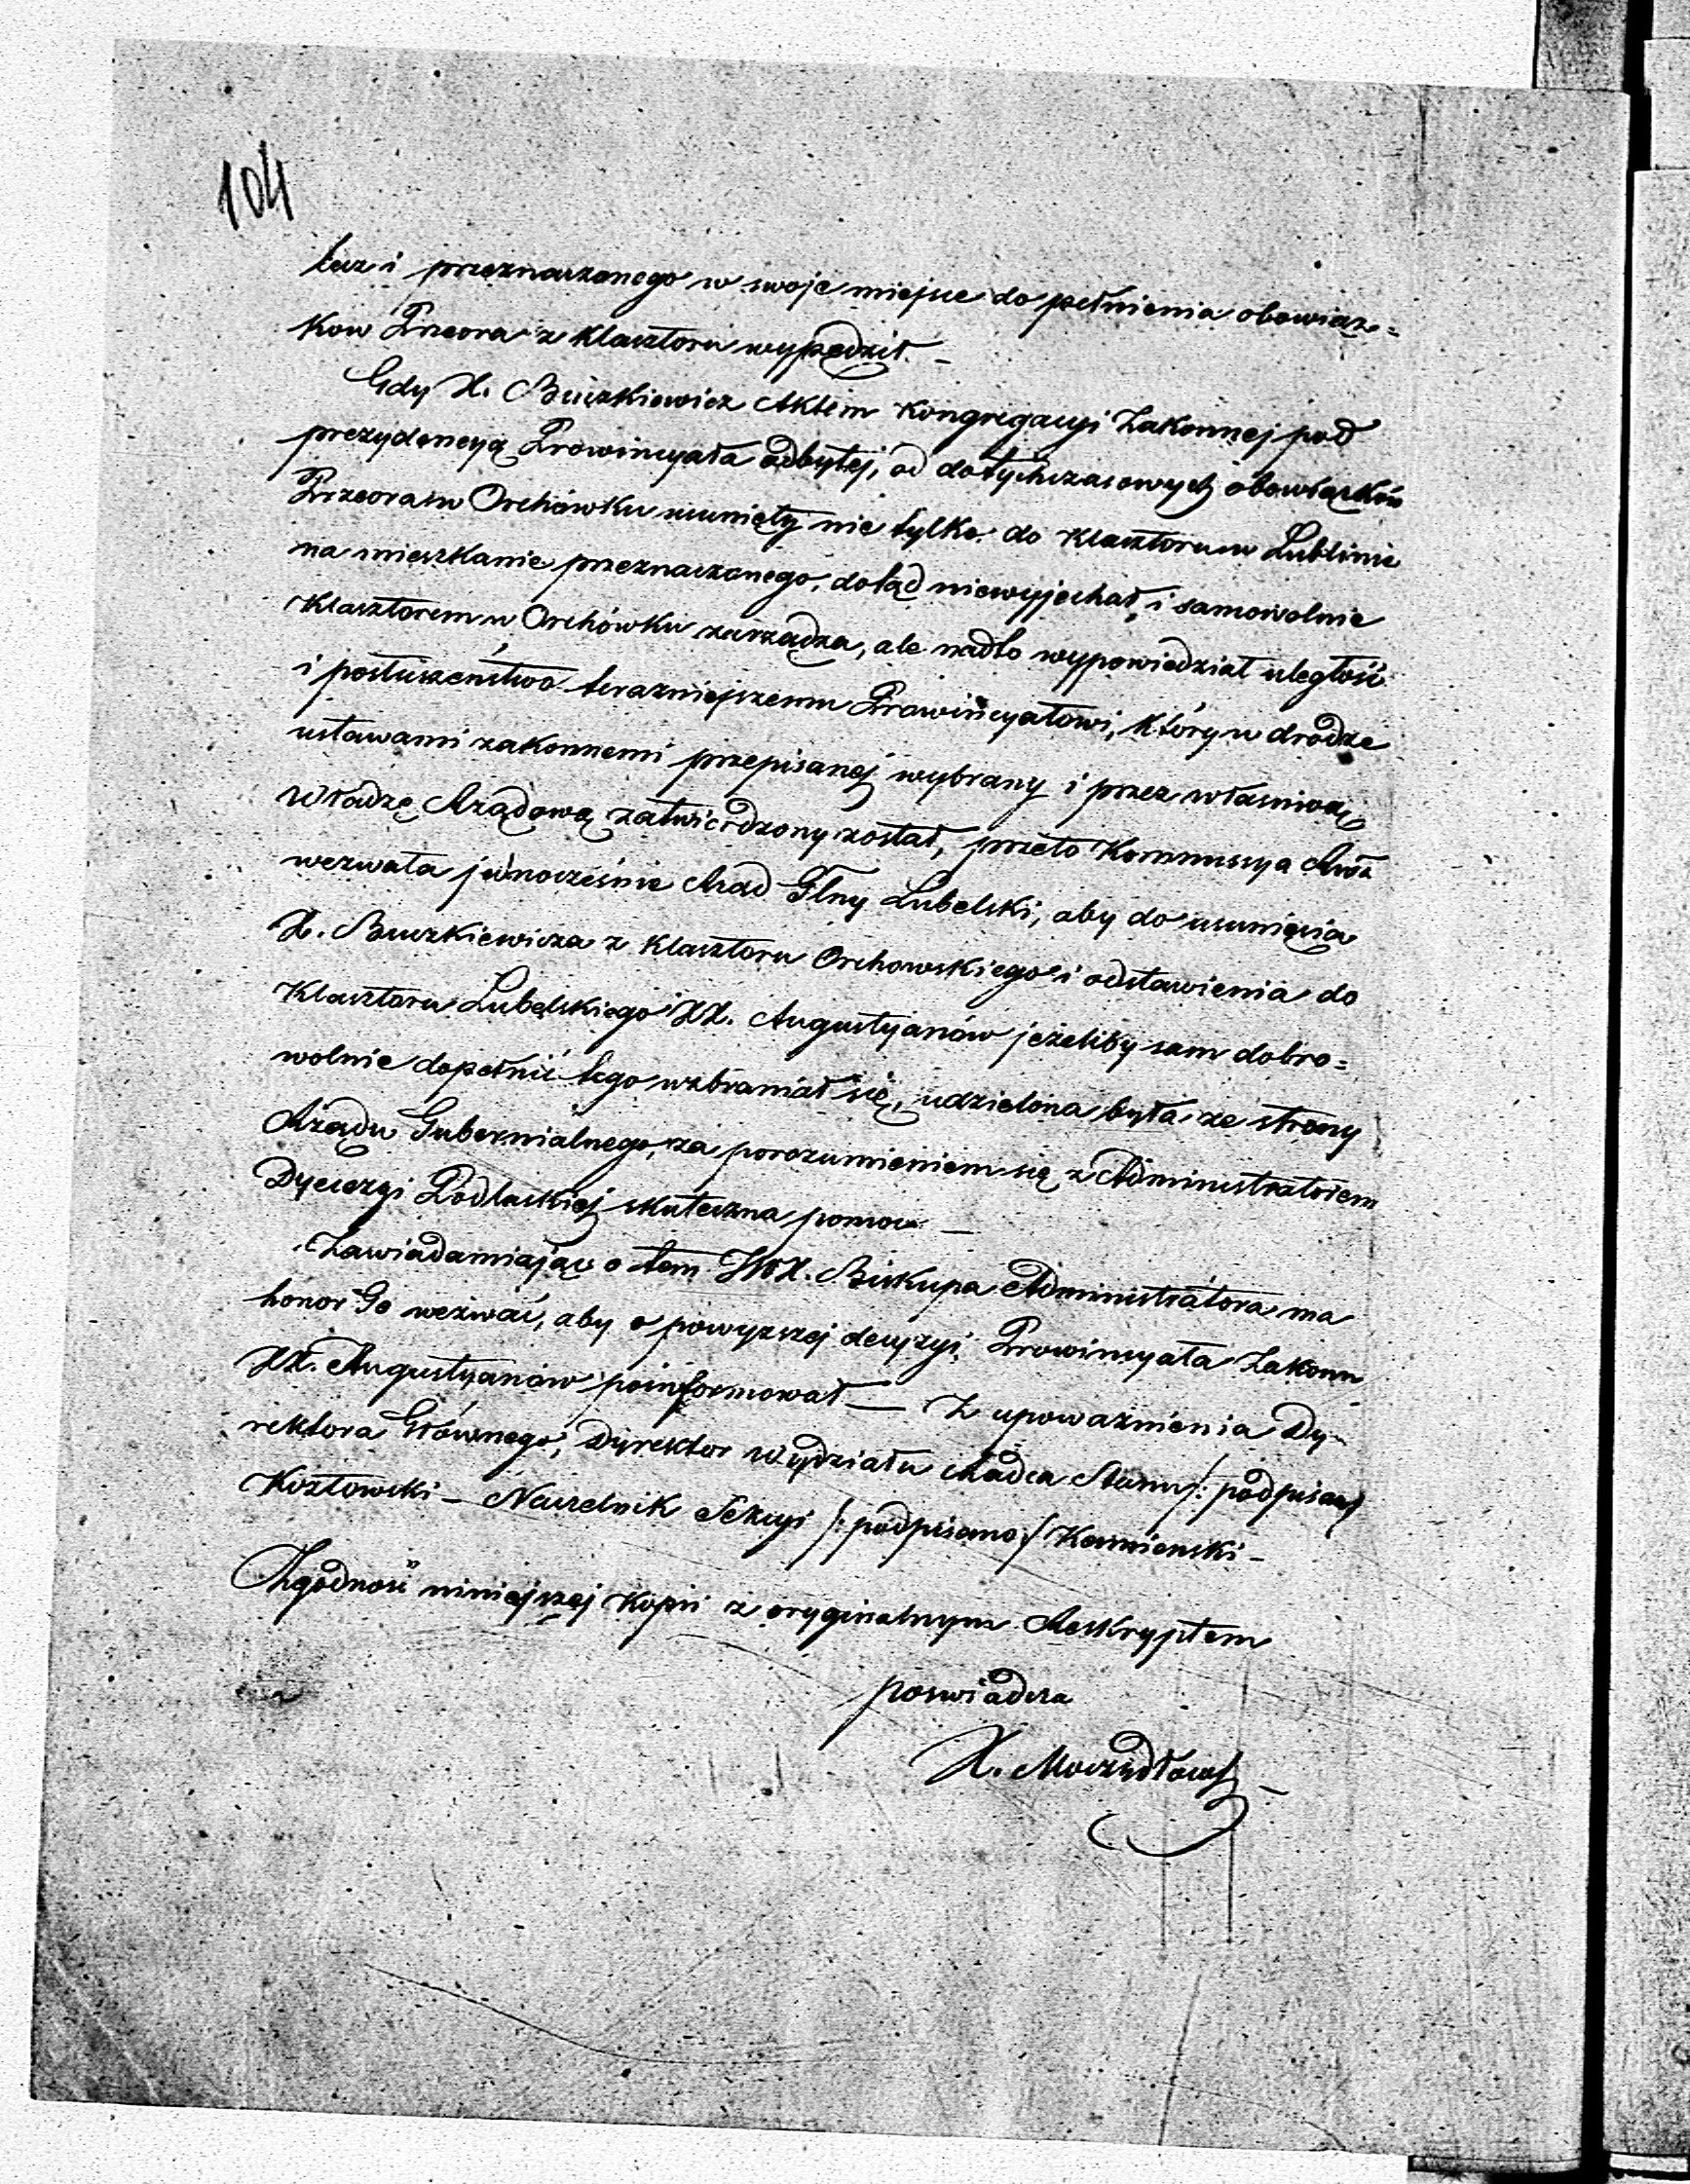 104
lecz i przeznaczonego w swoje miejsce do pełnienia obowiąz=
kow Przeora z klasztoru wypędził. –
Gdy X. Buczkiewicz Aktem Kongregacyi Zakonnej pod
prezydencyą Prowincyała odbytej, od dotychczasowych obowiązków
Przeora w Orchówku usunięty nie tylko do klasztoru w Lublinie
na mieszkanie przeznaczonego, dotąd niewyjechał i samowolnie
Klasztorem w Orchówku zarządza, ale nadto wypowiedział uległość
i posłuszeństwo teraźniejszemu Prowincyałowi, który w drodze
ustawami zakonnemi przepisanej wybrany i przez właściwą
Władzę Rządową zatwierdzony został, przeto Kommissya Rząd:
wezwała jednocześnie Rząd Glny Lubelski, aby do usunięcia
X. Buczkiewicza z klasztoru Orchowskiego i odstawienia do
Klasztoru Lubelskiego XX. Augustyanów jeżeliby sam dobro=
wolnie dopełnić tego wzbraniał się, udzielona była ze strony
Rządu Gubernialnego, za porozumieniem się z Administratorem
Dyecezyi Podlaskiej skuteczna pomoc. –
Zawiadamiając o tem JWX. Biskupa Administratora ma
honor Go wezwać, aby o powyższej decyzyi Prowincyała Zakonu
XX. Augustyanów poinformował – Z upoważnienia Dy-
rektora Głównego, Dyrektor Wydziału Radca Stanu /: podpisany
Kozłowski – Naczelnik Sekcyi /: podpisano :/ Kamienski –
Zgodność niniejszej Kopii z oryginalnym Reskryptem
poswiadcza
X.